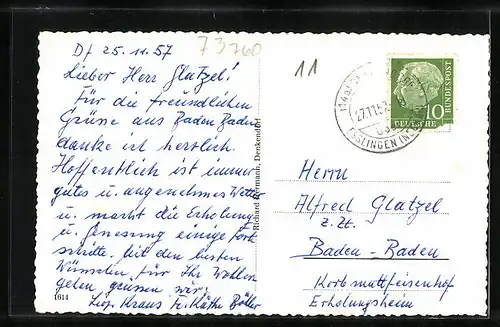 Df 25.11.57
73760
Lieber Herr Glatzel!
Für die freundlichen
Grüsse aus Baden Baden
danke ist herzlich.
Hoffentlich ist immer
gutes u. angenehmes Wetter
u. macht die Erholung
u. Genesung einige Fort
schritte. Mit den besten
Wünschen für Ihr Wohler-
gehen grüssen Sie
Kraus u. Käthe
1614
Richard Herrmann, Denkendorf
11
27.11.57
ESSLINGEN (NECKAR)
10
DEUTSCHE
BUNDESPOST
Herrn
Alfred Glatzel
z. Zt.
Baden-Baden
Korbmattfelsenhof
Erholungsheim